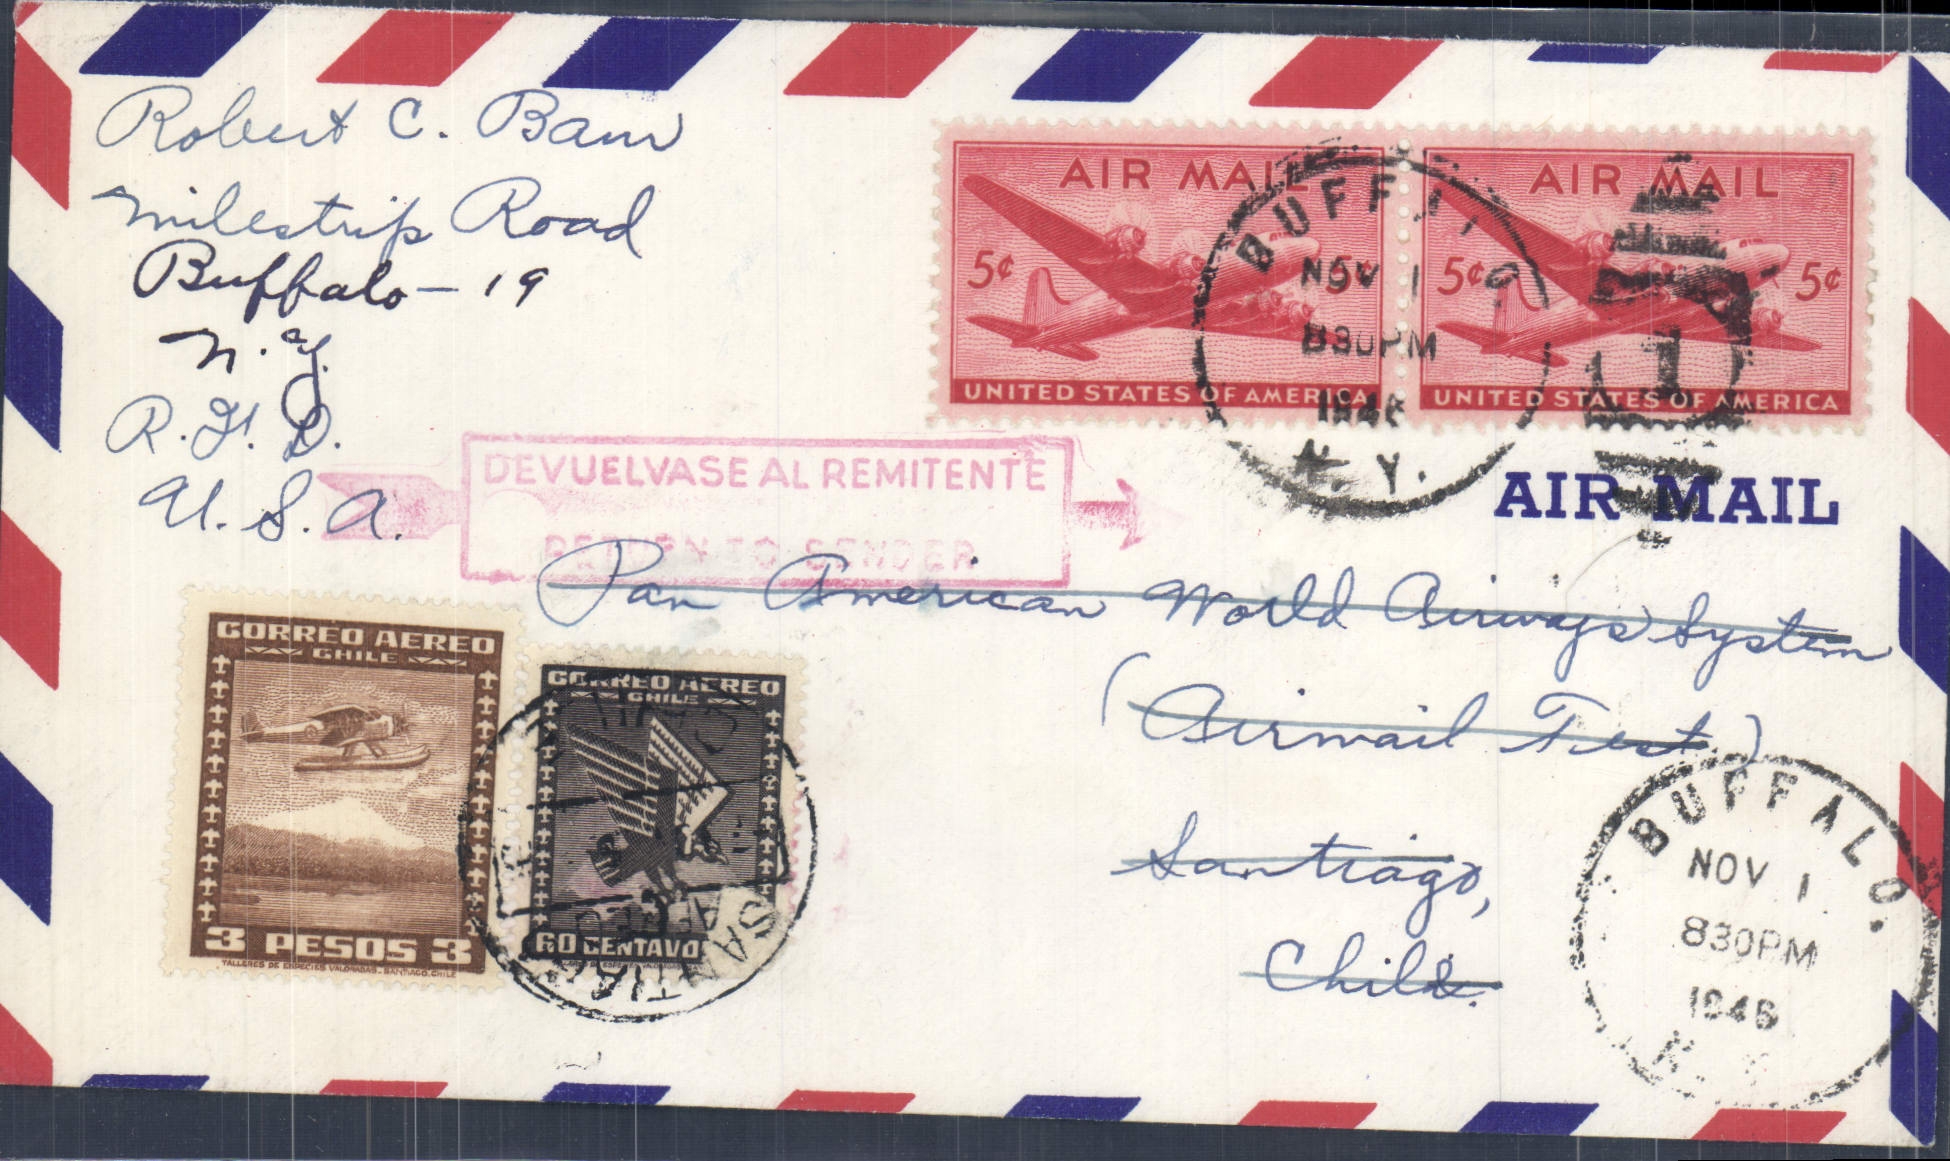 Robert C. Baur
Milestrip Road
Buffalo - 19
N. Y.
R. F. D.
U. S. A.
AIR MAIL
5¢ 5¢
UNITED STATES OF AMERICA
AIR MAIL
5¢ 5¢
UNITED STATES OF AMERICA
BUFFALO
NOV 1
830PM
1946
N. Y.
1
AIR MAIL
DEVUELVASE AL REMITENTE
RETURN TO SENDER
Pan American World Airways System
(Airmail Test)
Santiago,
Chile.
CORREO AEREO
CHILE
3 PESOS 3
TALLERES DE ESPECIES VALORADAS - SANTIAGO, CHILE
CORREO AEREO
CHILE
60 CENTAVO
SANTIAGO
BUFFALO.
NOV 1
830PM
1946
N. Y.